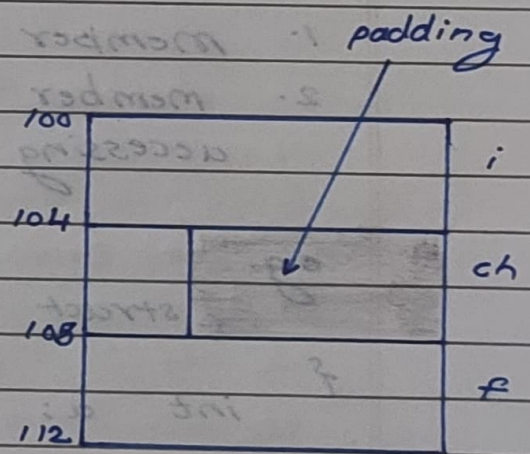 padding
100
i
104
ch
108
f
112